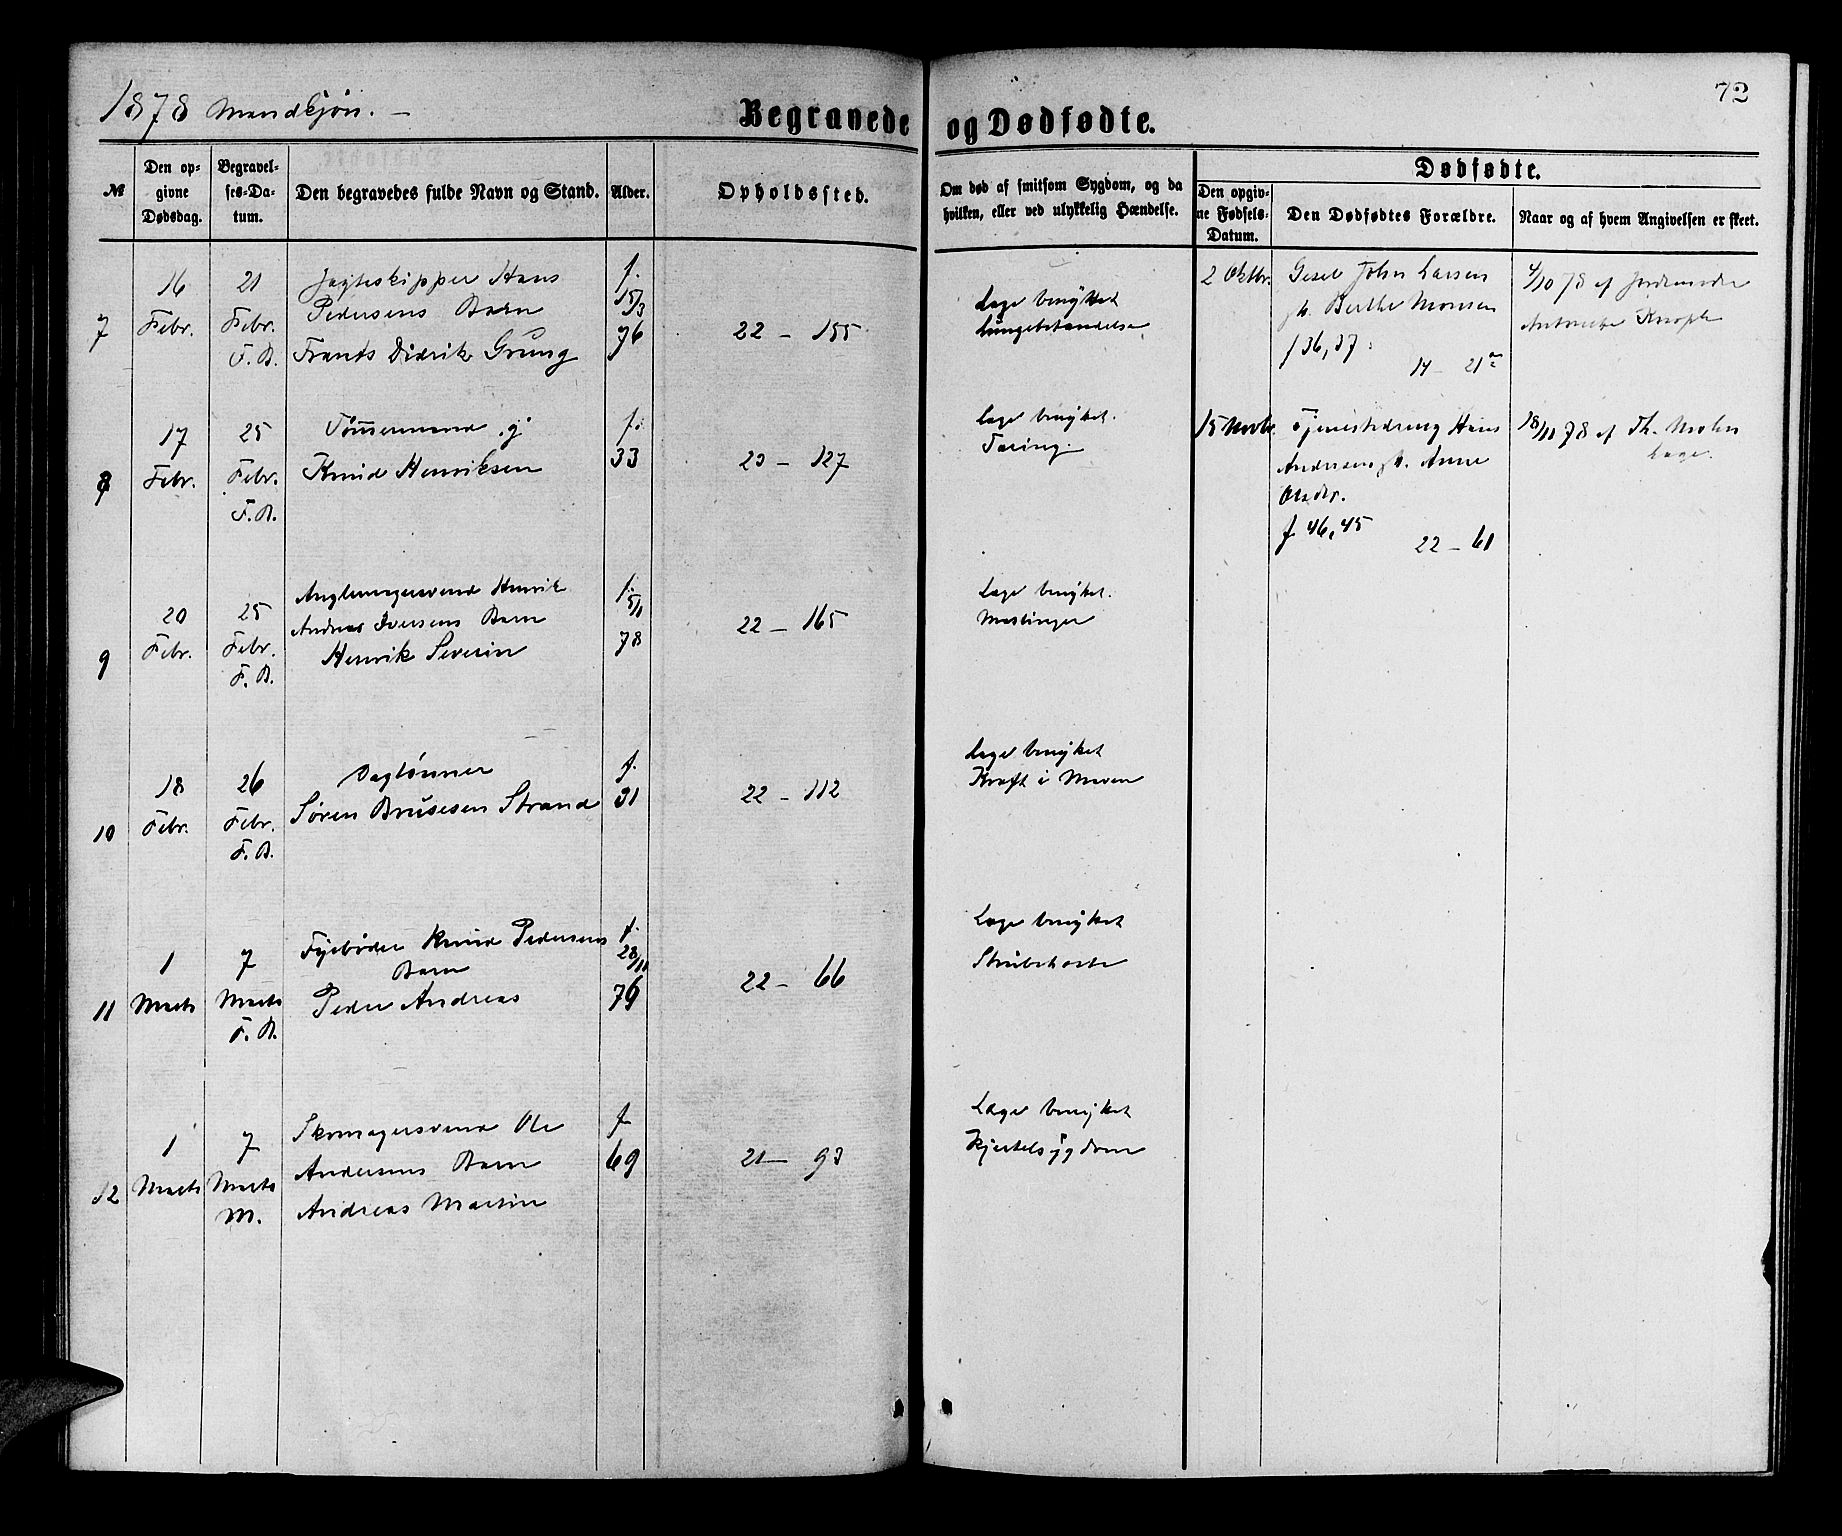 1878 Mandkjøn. —
Begravede og Dødfødte.
72
№
Den opgivne Dødsdag.
Begravelses-Datum.
Den begravedes fulde Navn og Stand.
Alder.
Opholdssted.
Om død af smitsom Sygdom, og da hvilken, eller ved ulykkelig Hændelse.
Dødfødte.
Den opgivne Fødsels-Datum.
Den Dødfødtes Forældre.
Naar og af hvem Angivelsen er skeet.
7
16 Febr.
21 Febr. F. B.
Jagteskipper Hans
Pedersens Barn
Frants Didrik Grung
f. 15/3 76
22 - 155
Læge benyttet
Lungebetændelse
8
17 Febr.
25 Febr. F. B.
Tømmermand g
Knud Henriksen
f. 33
23 - 127
Læge benyttet.
Tæring.
9
20 Febr.
25 Febr. F. B.
Henrik
Andreas Iversens Barn
Henrik Severin
f. 5/1 78
22 - 165
Læge benyttet.
Meslinger
10
18 Febr.
26 Febr. F. B.
Dagtønner
Søren Brusesen Strand
f. 31
22 - 112
Læge benyttet
Kræft i Maven
11
1 Marts
7 Marts F. B.
Fyrbøder Knud Pedersens
Barn
Peder Andreas
f. 28/11 76
22 - 66
Læge benyttet
Strubehoste
12
1 Marts
7 Marts M.
Skomagersvend Ole
Andersens Barn
Andreas Martin
f 69
21 - 93
Læge benyttet
Kjertelsygdom
2 Oktbr.
Gesel John Larsen
Berthe Monsen
f 36, 37
14 - 21a
4/10 78 af Jordemoder
15 Novbr.
Tjenestedreng Hans
Andersen Anne
Olsdr.
f 46, 45
22 - 61
18/11 78 af Th. Mohn
Læge.